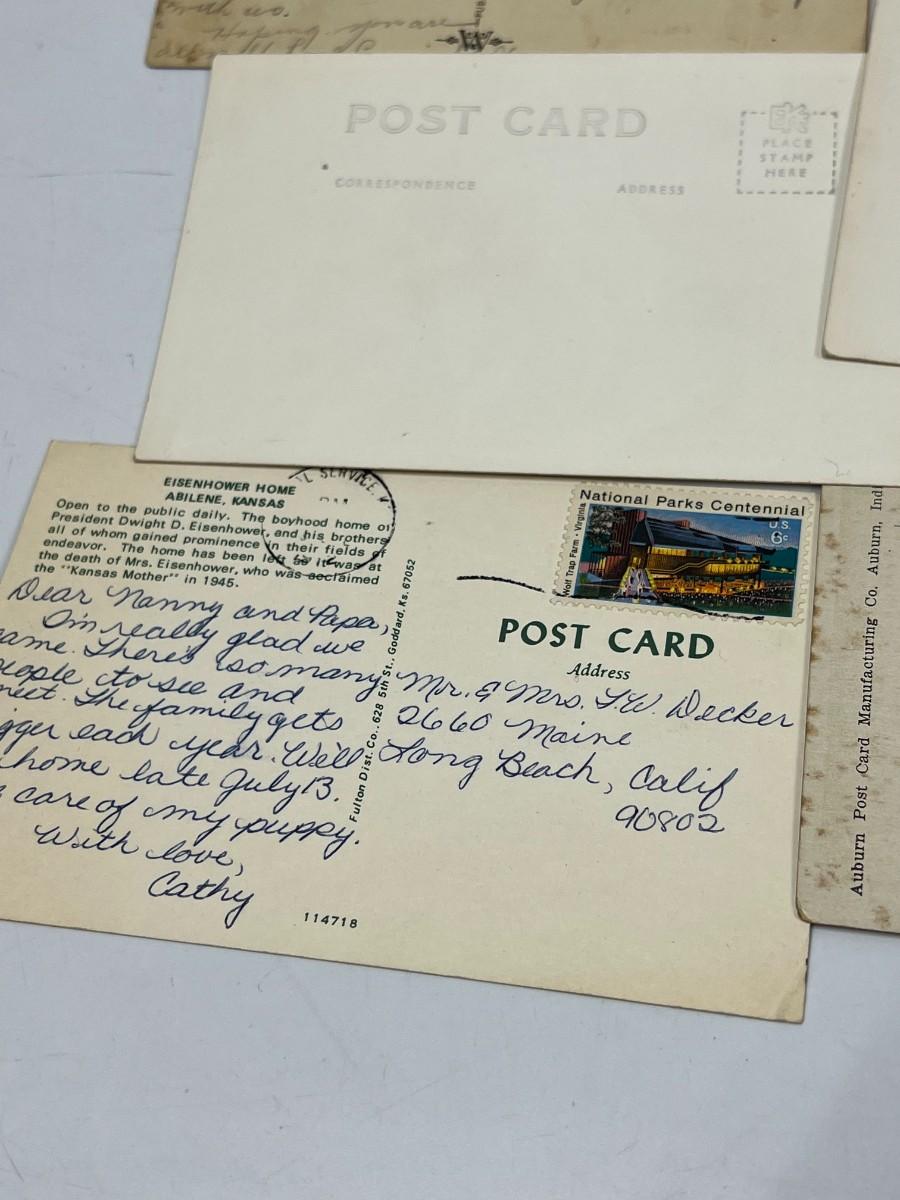 with us.
POST CARD
CORRESPONDENCE
ADDRESS
PLACE
STAMP
HERE
EISENHOWER HOME
ABILENE, KANSAS
Open to the public daily. The boyhood home of
President Dwight D. Eisenhower, and his brothers
all of whom gained prominence in their fields of
endeavor. The home has been left as it was at
the death of Mrs. Eisenhower, who was acclaimed
the "Kansas Mother" in 1945.
L SERVICE,
Dear Nanny and Papa,
I'm really glad we
came. There's so many
people to see and
meet. The family gets
gger each year. Well
home late July 13.
care of my puppy.
With love,
Cathy
114718
Fulton Dist. Co., 628 5th St., Goddard, Ks. 67052
National Parks Centennial
U.S.
6c
Wolf Trap Farm · Virginia
POST CARD
Address
Mr. & Mrs. F.W. Decker
2660 Maine
Long Beach, Calif
90802
Auburn Post Card Manufacturing Co. Auburn, Ind